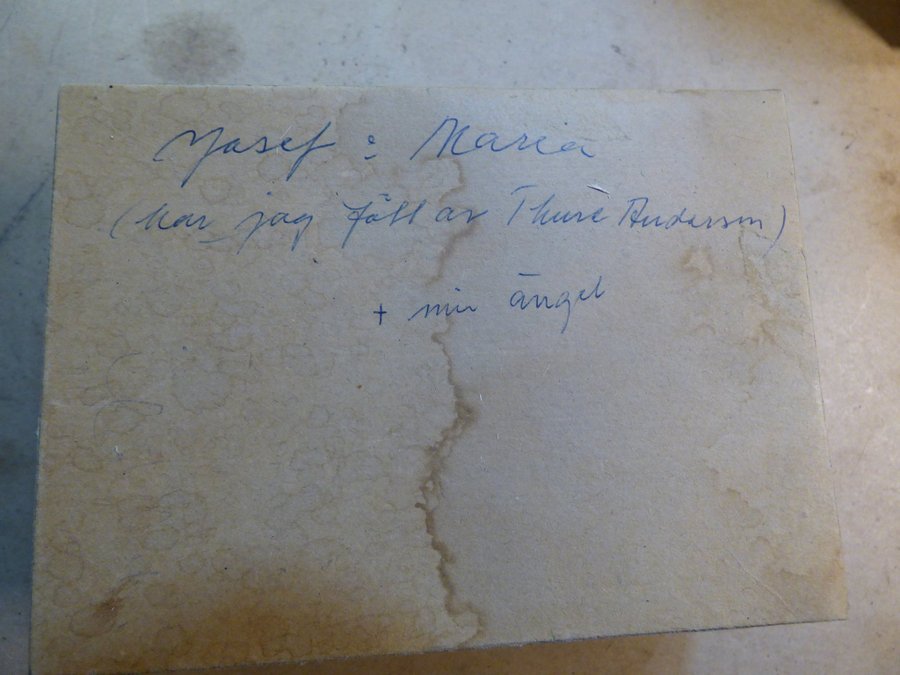 Josef : Maria
(har jag fått av Thure Anderson)
+ min ängel